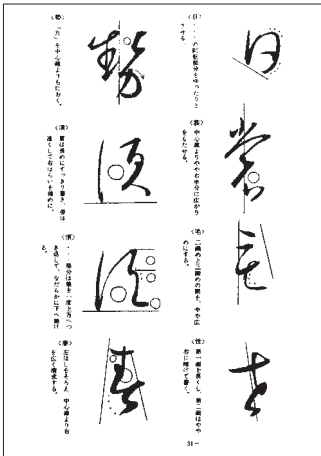 〈日〉
の転折部分をゆったりと
させる。
〈裳〉
中心線よりやや右半分に広がり
をもたせる。
〈毛〉
二画めと三画めの間を、やや広
めにする。
第一画を長くし、第二画はやや
右に傾けて書く。
〈勢〉
「力」を中心線よりも右におく。
〈須〉
扁は長めにすっきり書き、旁は
速くして右はらいを短めに。
〈須〉
部分は筆を一度上方へつ
き返して、なだらかに下へ続け
る。
〈春〉
左はしをそろえ、中心線より右
を広く構成する。
31